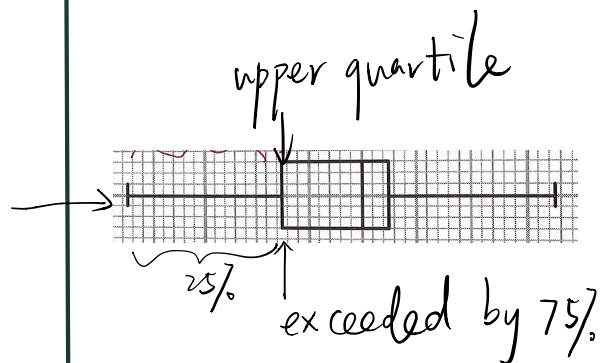 upper quartile
25%
exceeded by 75%